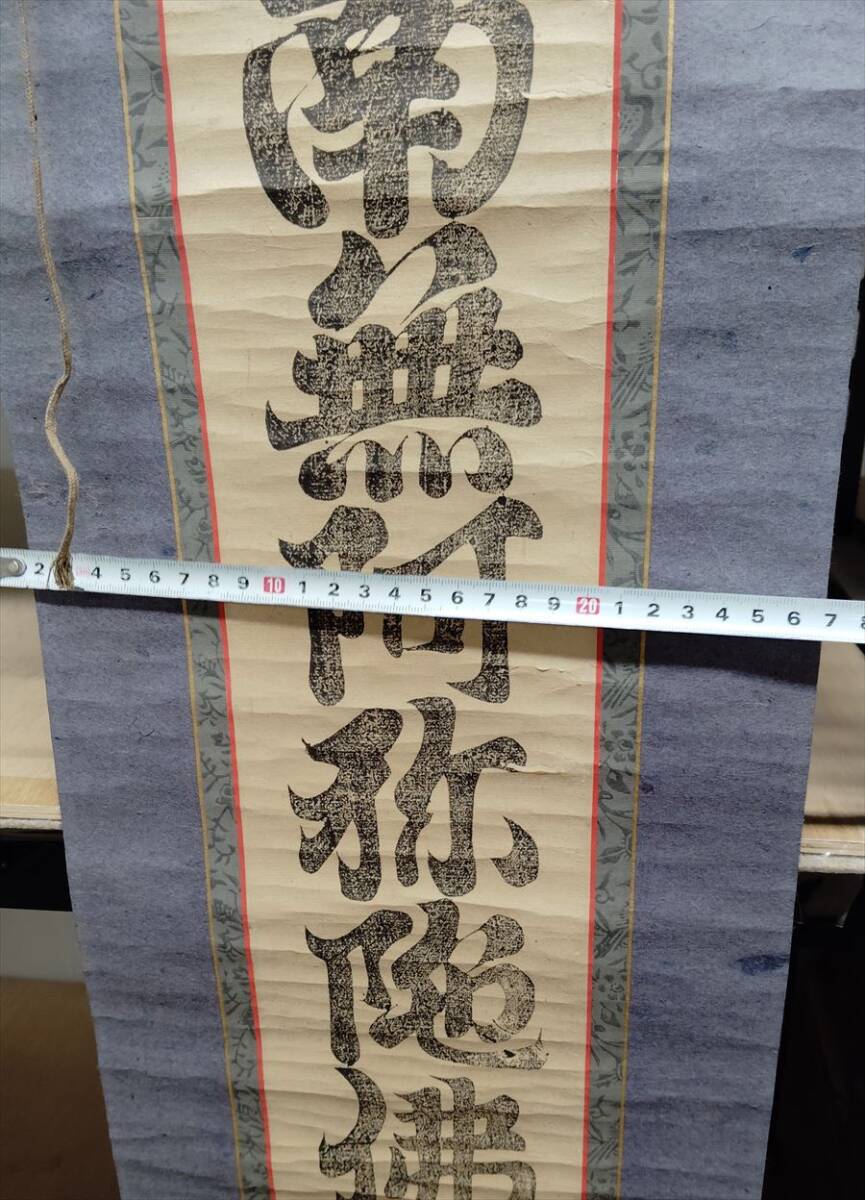 南無阿弥陀佛
2 4 5 6 7 8 9 10 1 2 3 4 5 6 7 8 9 20 1 2 3 4 5 6 7